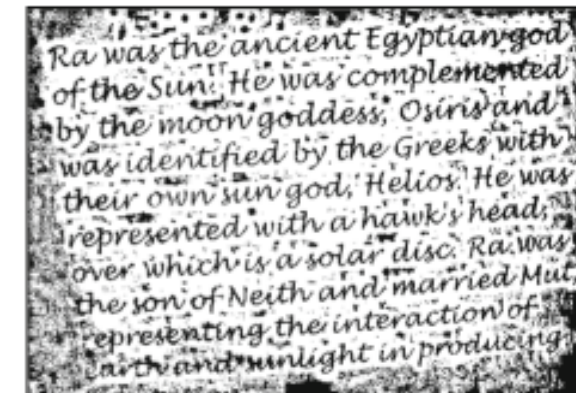 Ra was the ancient Egyptian god
of the Sun. He was complemented
by the moon goddess, Osiris and
was identified by the Greeks with
their own sun god, Helios. He was
represented with a hawk's head,
over which is a solar disc. Ra was
the son of Neith and married Mut
representing the interaction of
earth and sunlight in producing